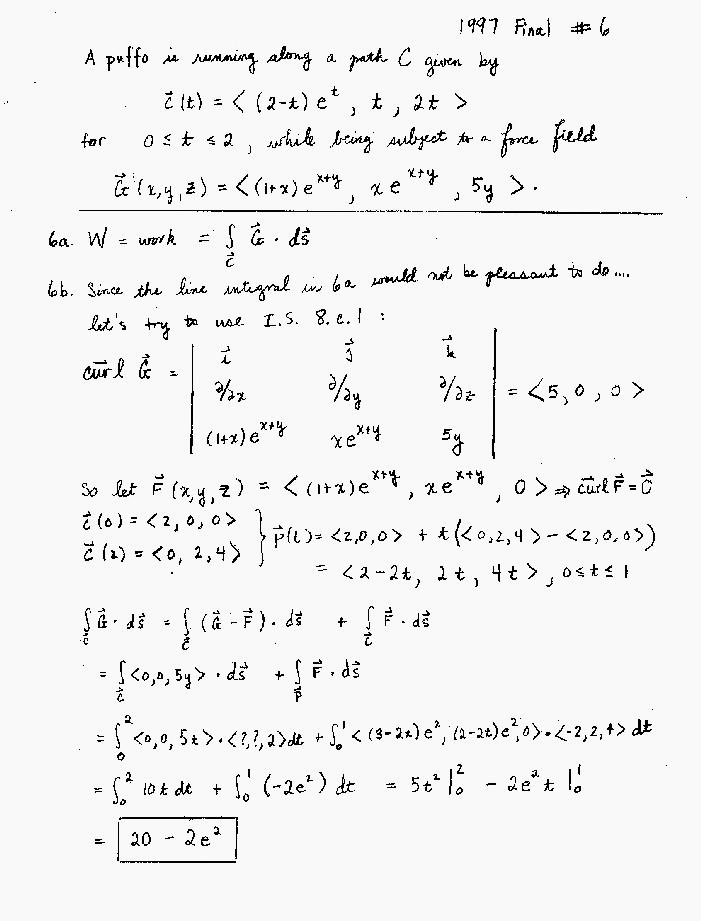 1997 Final #6
A puffo is running along a path C given by
c⃗(t) = < (2-t)e^t , t , 2t >
for 0 ≤ t ≤ 2 , while being subject to a force field
G⃗(x,y,z) = <(1+x)e^{x+y} , xe^{x+y} , 5y > .
6a. W = work = ∫_c⃗ G⃗ · ds⃗
6b. Since the line integral in 6a would not be pleasant to do....
let's try to use I.S. 8.c.1 :
curl G⃗ = | i⃗ j⃗ k⃗ |
| ∂/∂x ∂/∂y ∂/∂z | = <5,0,0>
| (1+x)e^{x+y} xe^{x+y} 5y |
So let F⃗(x,y,z) = <(1+x)e^{x+y} , xe^{x+y} , 0> ⇒ curl F⃗ = 0⃗
c⃗(0) = <2,0,0>
c⃗(2) = <0,2,4> } p⃗(t) = <2,0,0> + t(<0,2,4> - <2,0,0>)
= <2-2t, 2t, 4t> , 0≤t≤1
∫_c⃗ G⃗ · ds⃗ = ∫_c⃗ (G⃗ - F⃗) · ds⃗ + ∫_c⃗ F⃗ · ds⃗
= ∫_c⃗ <0,0,5y> · ds⃗ + ∫_p⃗ F⃗ · ds⃗
= ∫_0^2 <0,0,5t>·<?,?,2>dt + ∫_0^1 <(3-2t)e^2, (2-2t)e^2, 0>·<-2,2,4> dt
= ∫_0^2 10t dt + ∫_0^1 (-2e^2) dt = 5t^2 |_0^2 - 2e^2 t |_0^1
= 20 - 2e^2